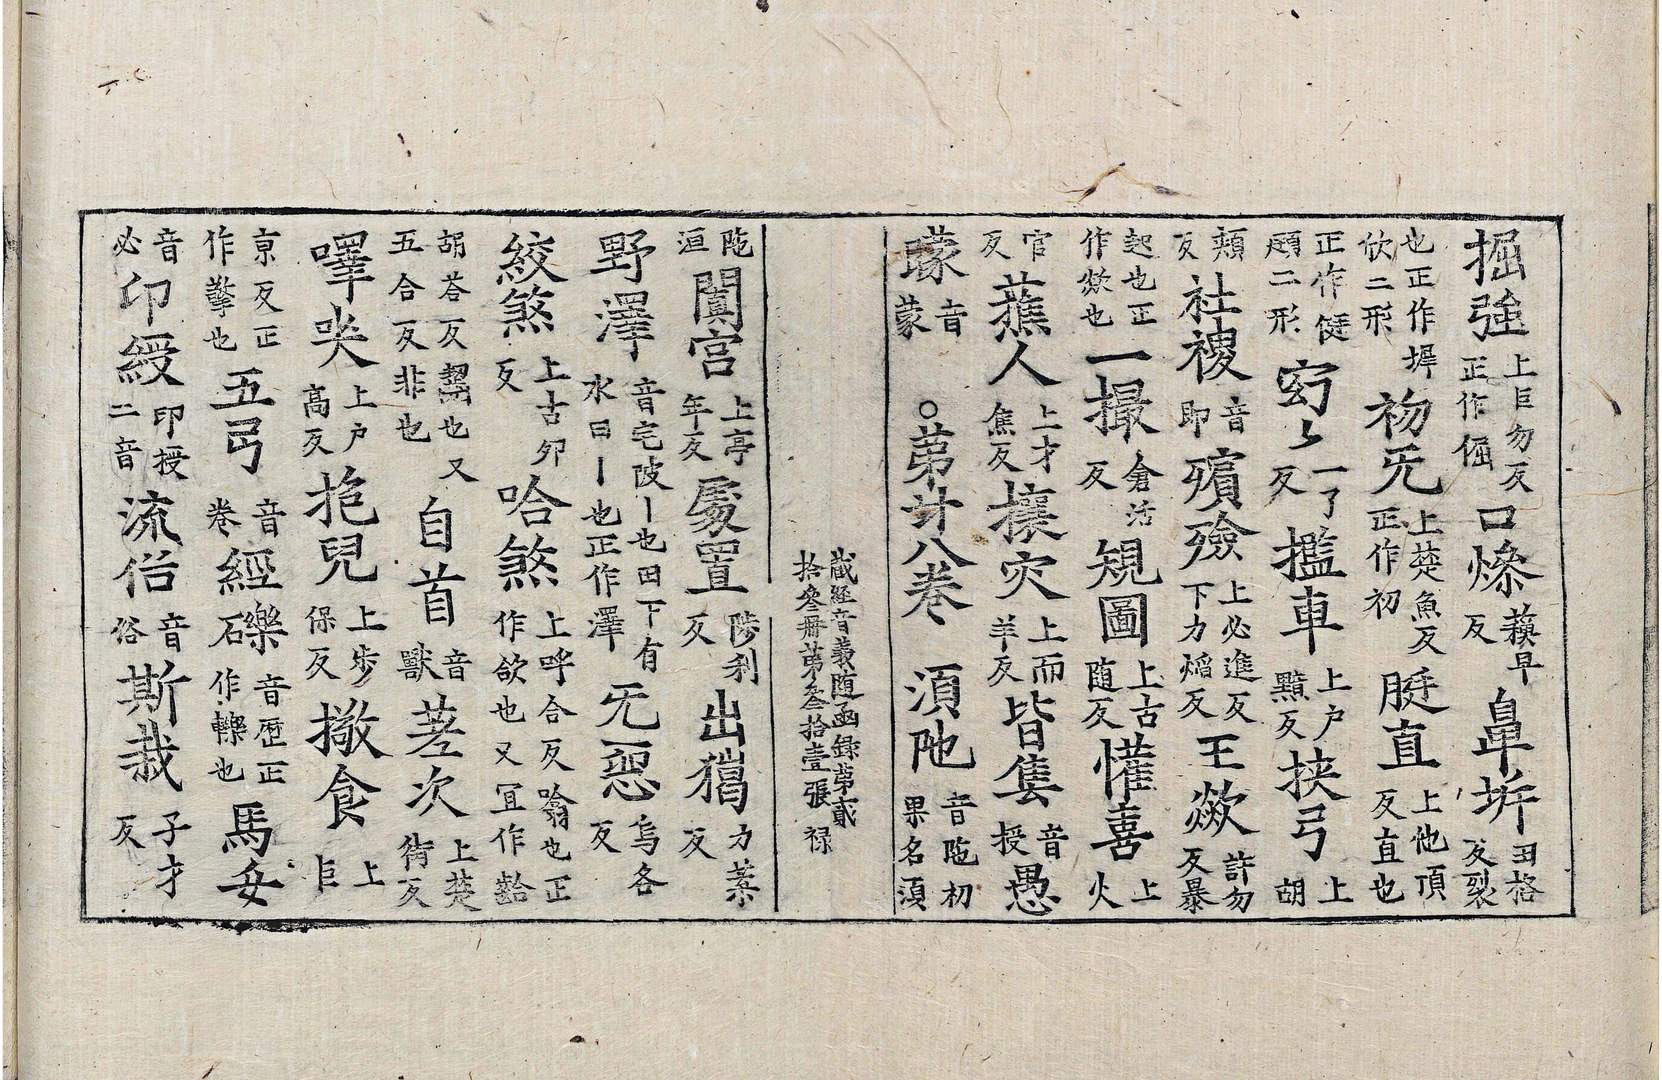 掘強上巨勿反正作倔口燥蘓早反鼻㘸丑格反裂
也正作墀㰦二形初旡上楚魚反正作初脡直上他頂反直也
正作侹頲二形窈〻一了反檻車上户黤反挟弓上胡
頬反社稷音即殯殮上必進反下力焰反王歘許勿反暴
起也正作欻也一撮倉活反規圖上古随反懽喜上火
官反蕉人上才焦反攘灾上而羊反皆隻音授愚
矇音蒙○苐廿八卷須陁音陁初果名須
藏経音義随函録苐貳
拾叁册苐叁拾壹張禄
陁洹闐宫上亭年反處置陟利反出獦力葉反
野澤音宅陂丨也田下有水曰丨也正作澤旡惡烏各反
絞煞上古夘反哈煞上呼合反噏也正作欲也又冝作齝
胡荅反齧也又五合反非也自首音獸差次上楚街反
嘷哭上户高反抱兒上步保反撽食上巨
京反正作擎也五弓音卷經礫音歴正石作轢也馬𡚶
音必印綬印授二音流俗音俗斯哉子才反